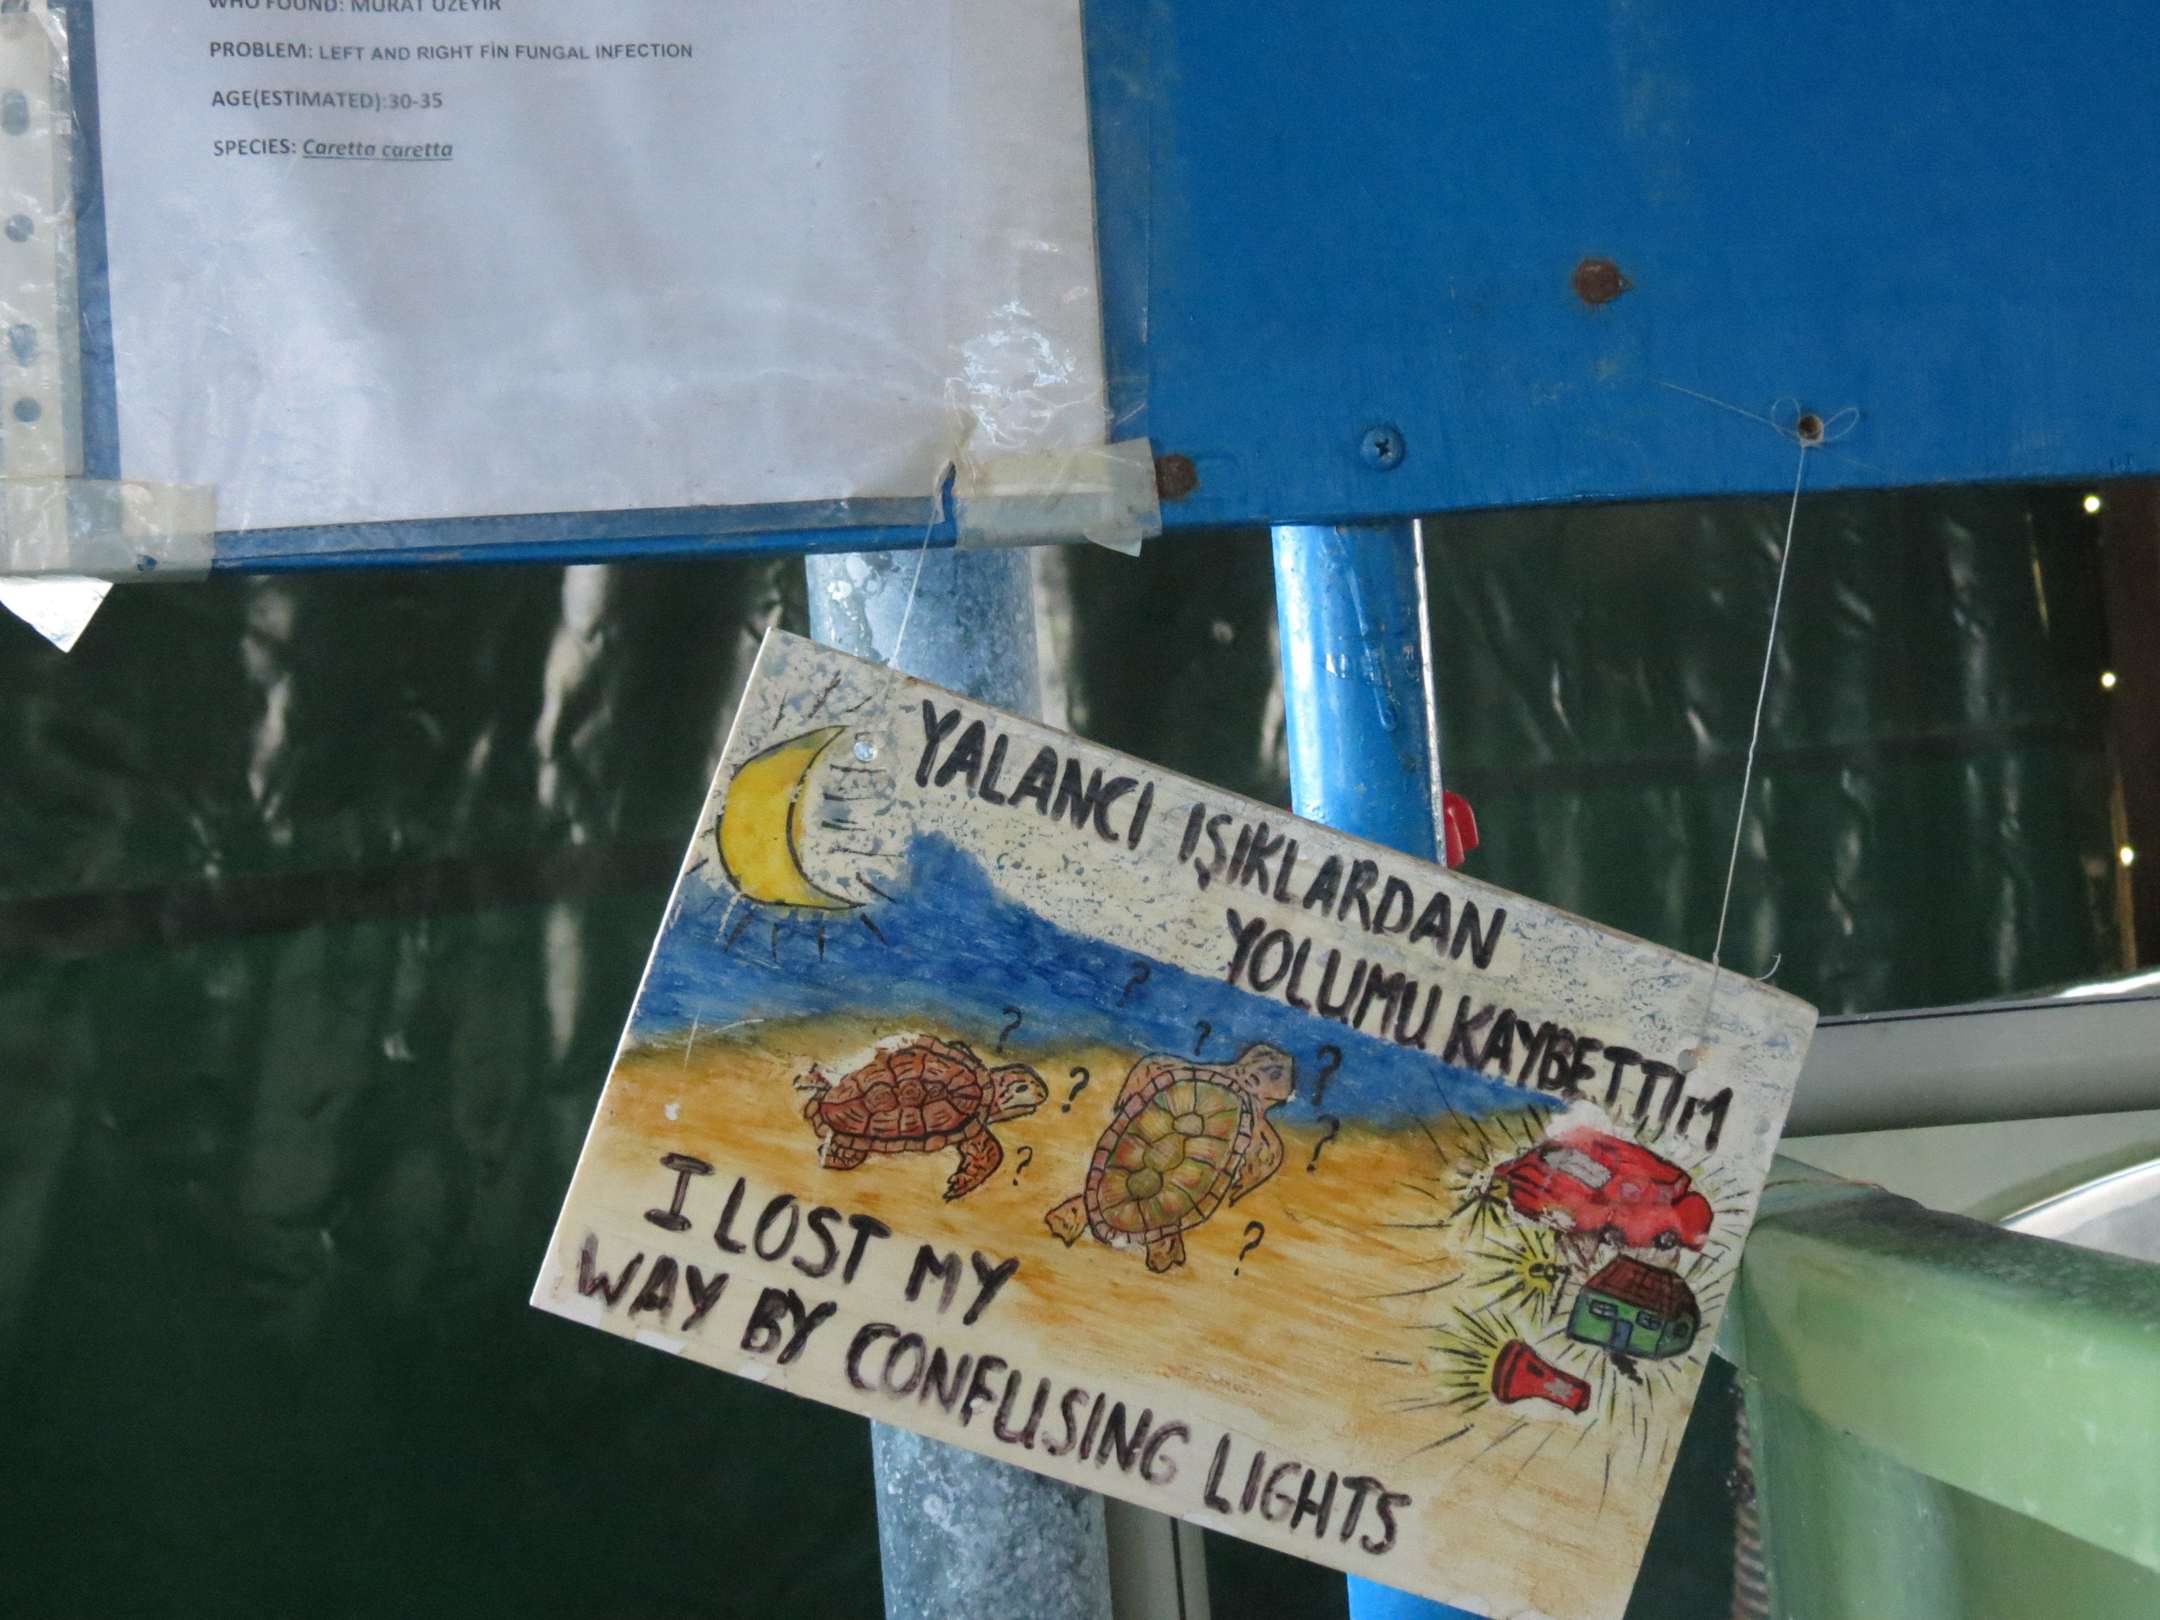 WHO FOUND: MURAT ÜZEYİR
PROBLEM: LEFT AND RIGHT FİN FUNGAL INFECTION
AGE(ESTIMATED):30-35
SPECIES: Caretta caretta
YALANCI IŞIKLARDAN
YOLUMU KAYBETTİM
? ? ? ? ? ? ? ?
I LOST MY
WAY BY CONFUSING LIGHTS